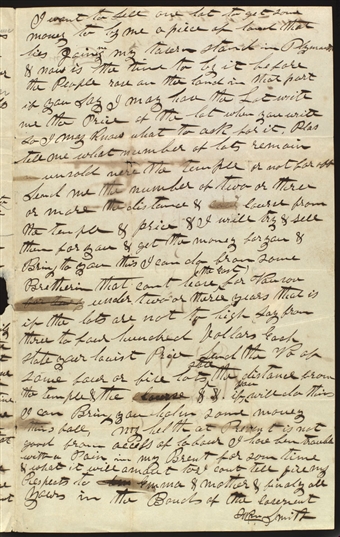 I want to sell one lot to get some
money to by me a piece of land that
lies my tavern stand in Plymouth
& now is the time to by it before
the People rase on the land in that part
if you say I may have the Lot write
me the Price of the lot when you write
so I may know what to ask for it, Plas
tell me what number of lots remain
unsold near the temple or not far off
Send me the number of two or three
or more the distance & course from
the temple & price & I will try & sell
them for you & get the money for you &
Bring to you this I can do from some
Brethren that cant leave for Nauvoo
(the east)
under two or three years that is
if the lots are not to high say from
three to four hundred Dollars Each
state your lowist Price Send the No of
some four or five lots the distance from
the temple & the course & I will do this
I can Bring you down some money
this fall, my helth at Present is not
good from access of Labour I have ben trouble
with a Pain in my Brest for som time
& what it will amount to I cant tell give my
Respects to Emma & mother & finaly all
yours in the Bonds of the covenent
Smith